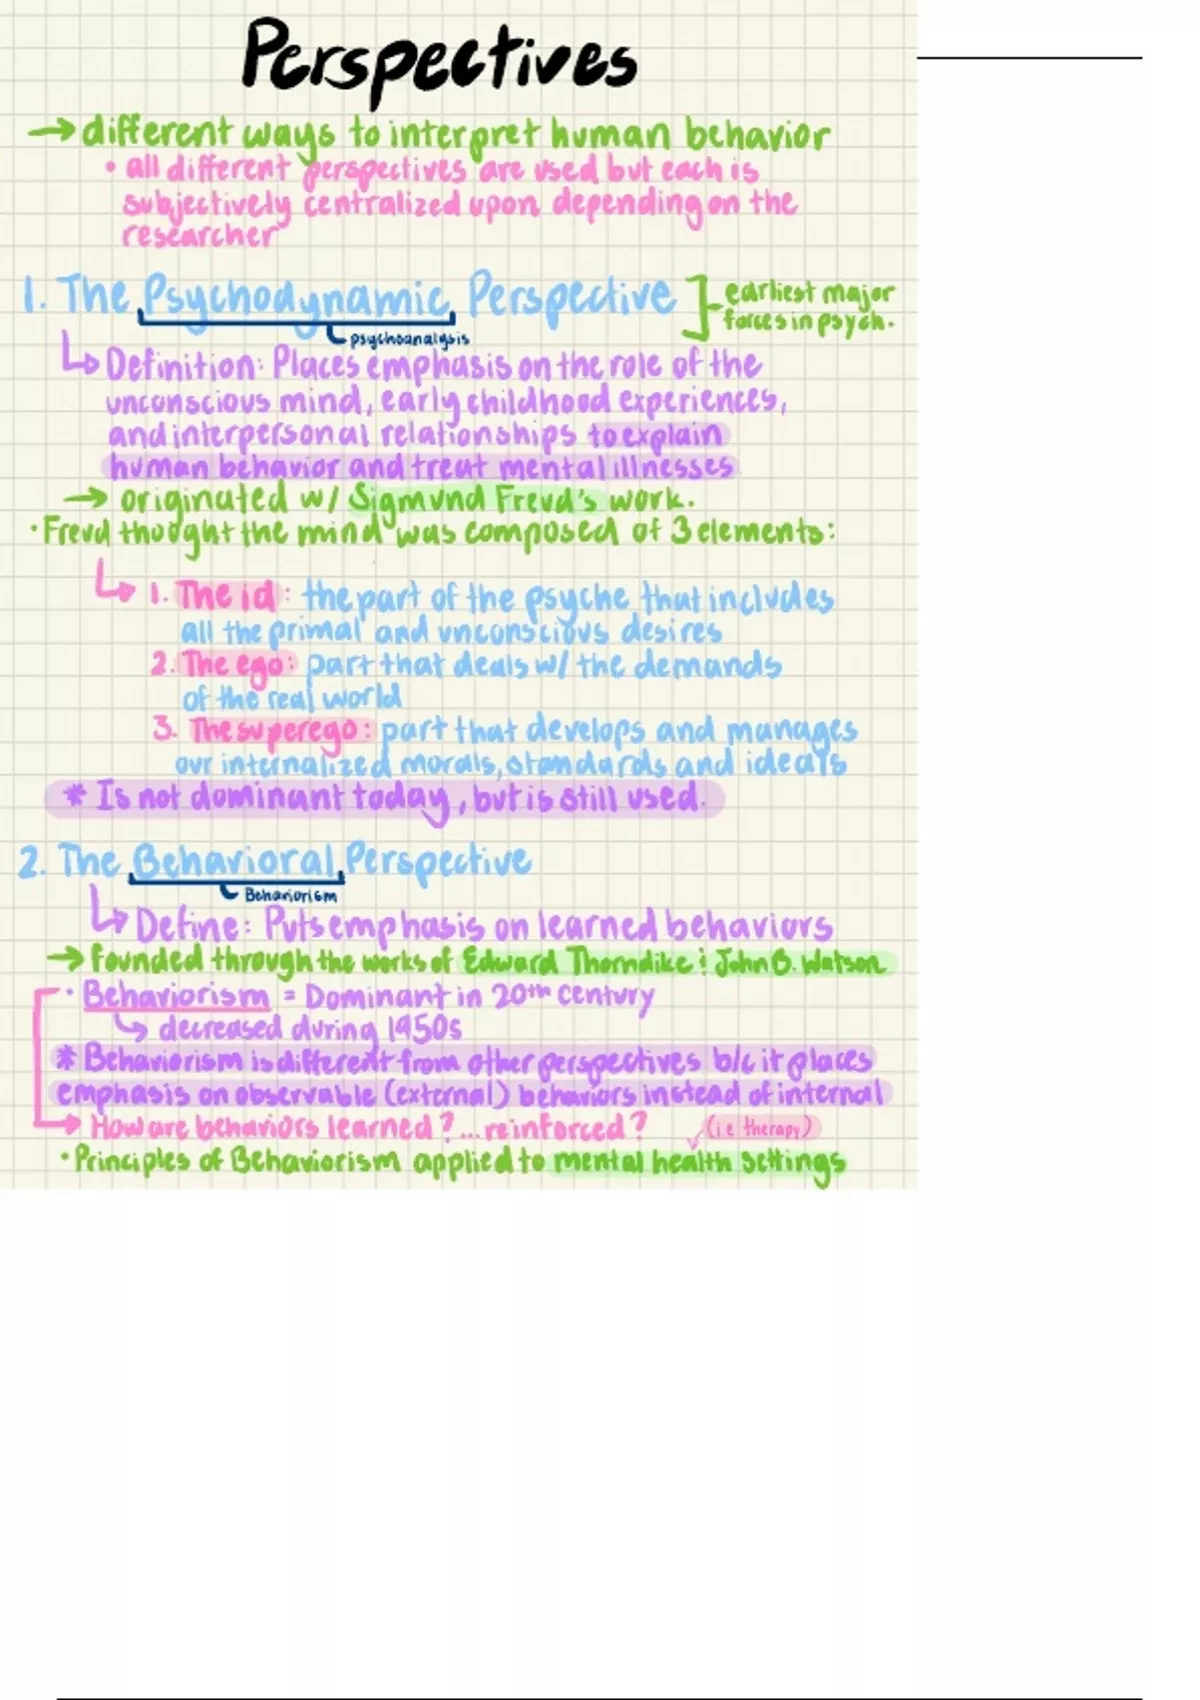 Perspectives
→ different ways to interpret human behavior
• all different perspectives are used but each is
subjectively centralized upon depending on the
researcher
1. The Psychodynamic Perspective
earliest major
forces in psych.
psychoanalysis
Definition: Places emphasis on the role of the
unconscious mind, early childhood experiences,
and interpersonal relationships to explain
human behavior and treat mental illnesses
→ originated w/ Sigmund Freud's work.
• Freud thought the mind was composed of 3 elements:
1. The id: the part of the psyche that includes
all the primal and unconscious desires
2. The ego: part that deals w/ the demands
of the real world
3. The superego: part that develops and manages
our internalized morals, standards and ideals
* Is not dominant today, but is still used.
2. The Behavioral Perspective
Behaviorism
Define: Puts emphasis on learned behaviors
→ founded through the works of Edward Thorndike & John B. Watson
• Behaviorism = Dominant in 20th century
decreased during 1950s
* Behaviorism is different from other perspectives b/c it places
emphasis on observable (external) behaviors instead of internal
→ How are behaviors learned? ... reinforced? (i.e therapy)
• Principles of Behaviorism applied to mental health settings